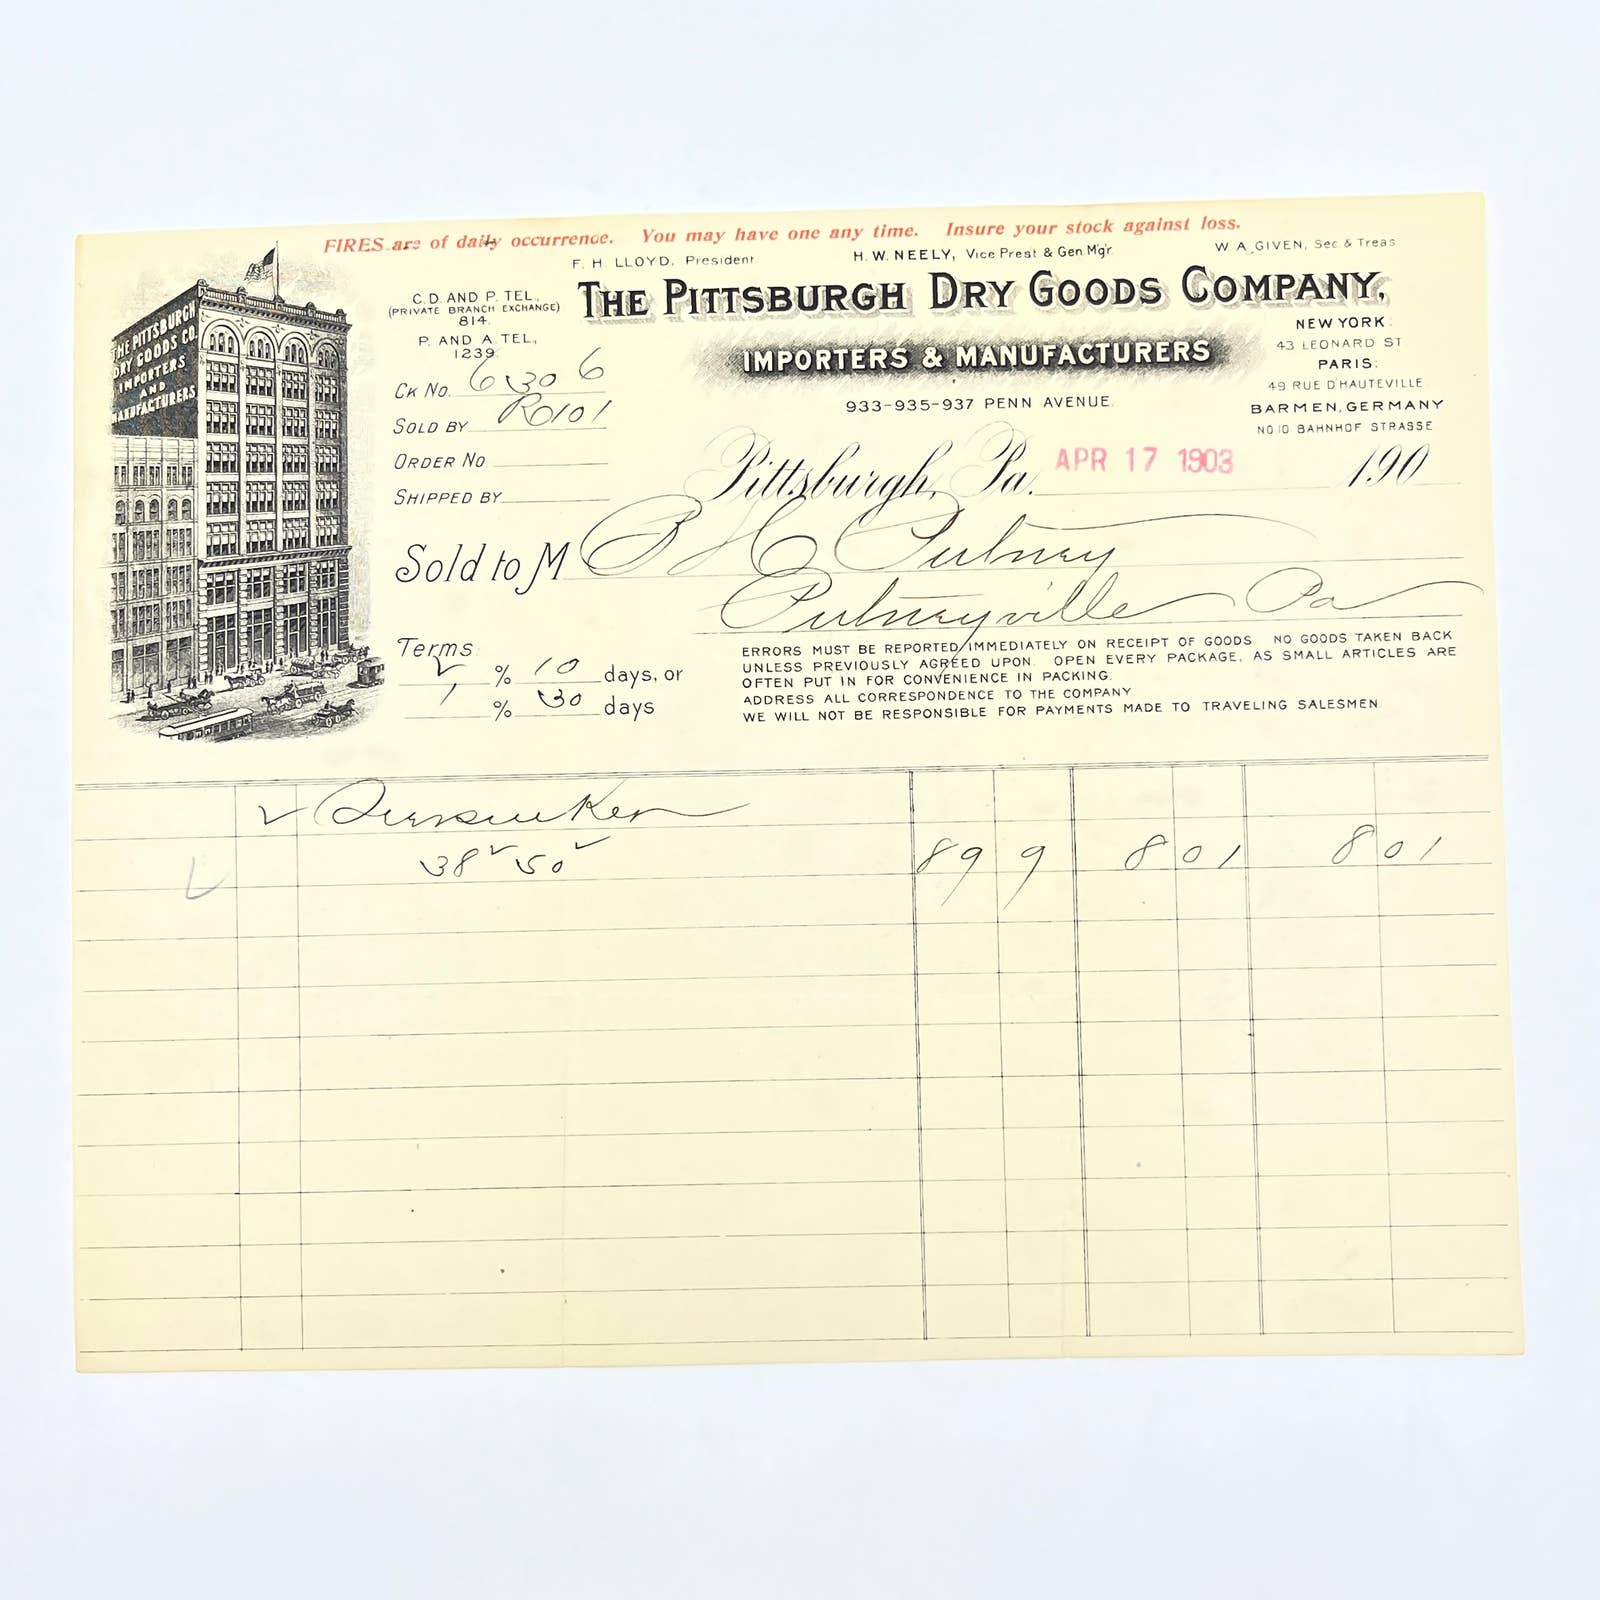 FIRES are of daily occurrence. You may have one any time. Insure your stock against loss.
F. H. LLOYD, President. H. W. NEELY, Vice Prest & Gen. M'g'r. W. A. GIVEN, Sec. & Treas
THE PITTSBURGH DRY GOODS COMPANY,
IMPORTERS & MANUFACTURERS
933-935-937 PENN AVENUE.
THE PITTSBURGH
DRY GOODS CO.
IMPORTERS
AND
MANUFACTURERS
C. D. AND P. TEL.,
(PRIVATE BRANCH EXCHANGE)
814.
P. AND A. TEL.,
1239.
CK NO. 6306
SOLD BY R0101
ORDER NO.
SHIPPED BY
NEW YORK:
43 LEONARD ST
PARIS:
49 RUE D'HAUTEVILLE.
BARMEN, GERMANY
NO 10 BAHNHOF STRASSE
Pittsburgh, Pa. APR 17 1903 190
Sold to M B H C Putney
Putneyville Pa
Terms:
2 % 10 days, or
1 % 30 days
ERRORS MUST BE REPORTED IMMEDIATELY ON RECEIPT OF GOODS. NO GOODS TAKEN BACK
UNLESS PREVIOUSLY AGREED UPON. OPEN EVERY PACKAGE, AS SMALL ARTICLES ARE
OFTEN PUT IN FOR CONVENIENCE IN PACKING.
ADDRESS ALL CORRESPONDENCE TO THE COMPANY
WE WILL NOT BE RESPONSIBLE FOR PAYMENTS MADE TO TRAVELING SALESMEN.
2
38² 50² 89 9 8 01 8 01